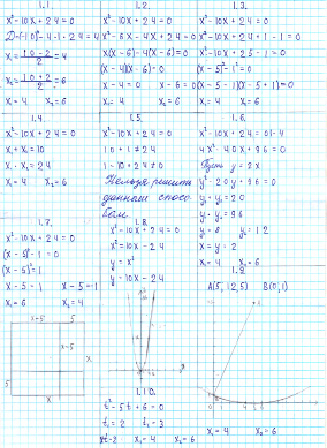 1.1.
x²-10x+24=0
D=(-10)²-4·1·24=4
x₁=(10-2)/2=4
x₂=(10+2)/2=6
x₁=4 x₂=6
1.2.
x²-10x+24=0
x²-6x-4x+24=0
x(x-6)-4(x-6)=0
(x-4)(x-6)=0
x-4=0 x-6=0
x₁=4 x₂=6
1.3.
x²-10x+24=0
x²-10x+24+1-1=0
x²-10x+25-1=0
(x-5)²-1²=0
(x-5-1)(x-5+1)=0
x₁=4 x₂=6
1.4.
x²-10x+24=0
x₁+x₂=10
x₁·x₂=24
x₁=4 x₂=6
1.5.
x²-10x+24=0
1-10+24≠0
Нельзя решить
данным спосо
бом.
1.6.
x²-10x+24=0|·4
4x²-40x+96=0
Пусть y=2x
y²-20y+96=0
y₁+y₂=20
y₁·y₂=96
y=8 y=12
x₁=4 x₂=6
1.7.
x²-10x+24=0
(x-5)²-1=0
(x-5)²=1
x-5=1 x-5=-1
x₂=6 x₁=4
x-5 5
x-5
x
5
x
1.8.
x²-10x+24=0
x²=10x-24
y=x²
y=10x-24
1.9.
A(5;12,5) B(0;1)
x₁=4 x₂=6
1.10.
t²-5t+6=0
t₁=2 t₂=3
x₁=4 x₂=6